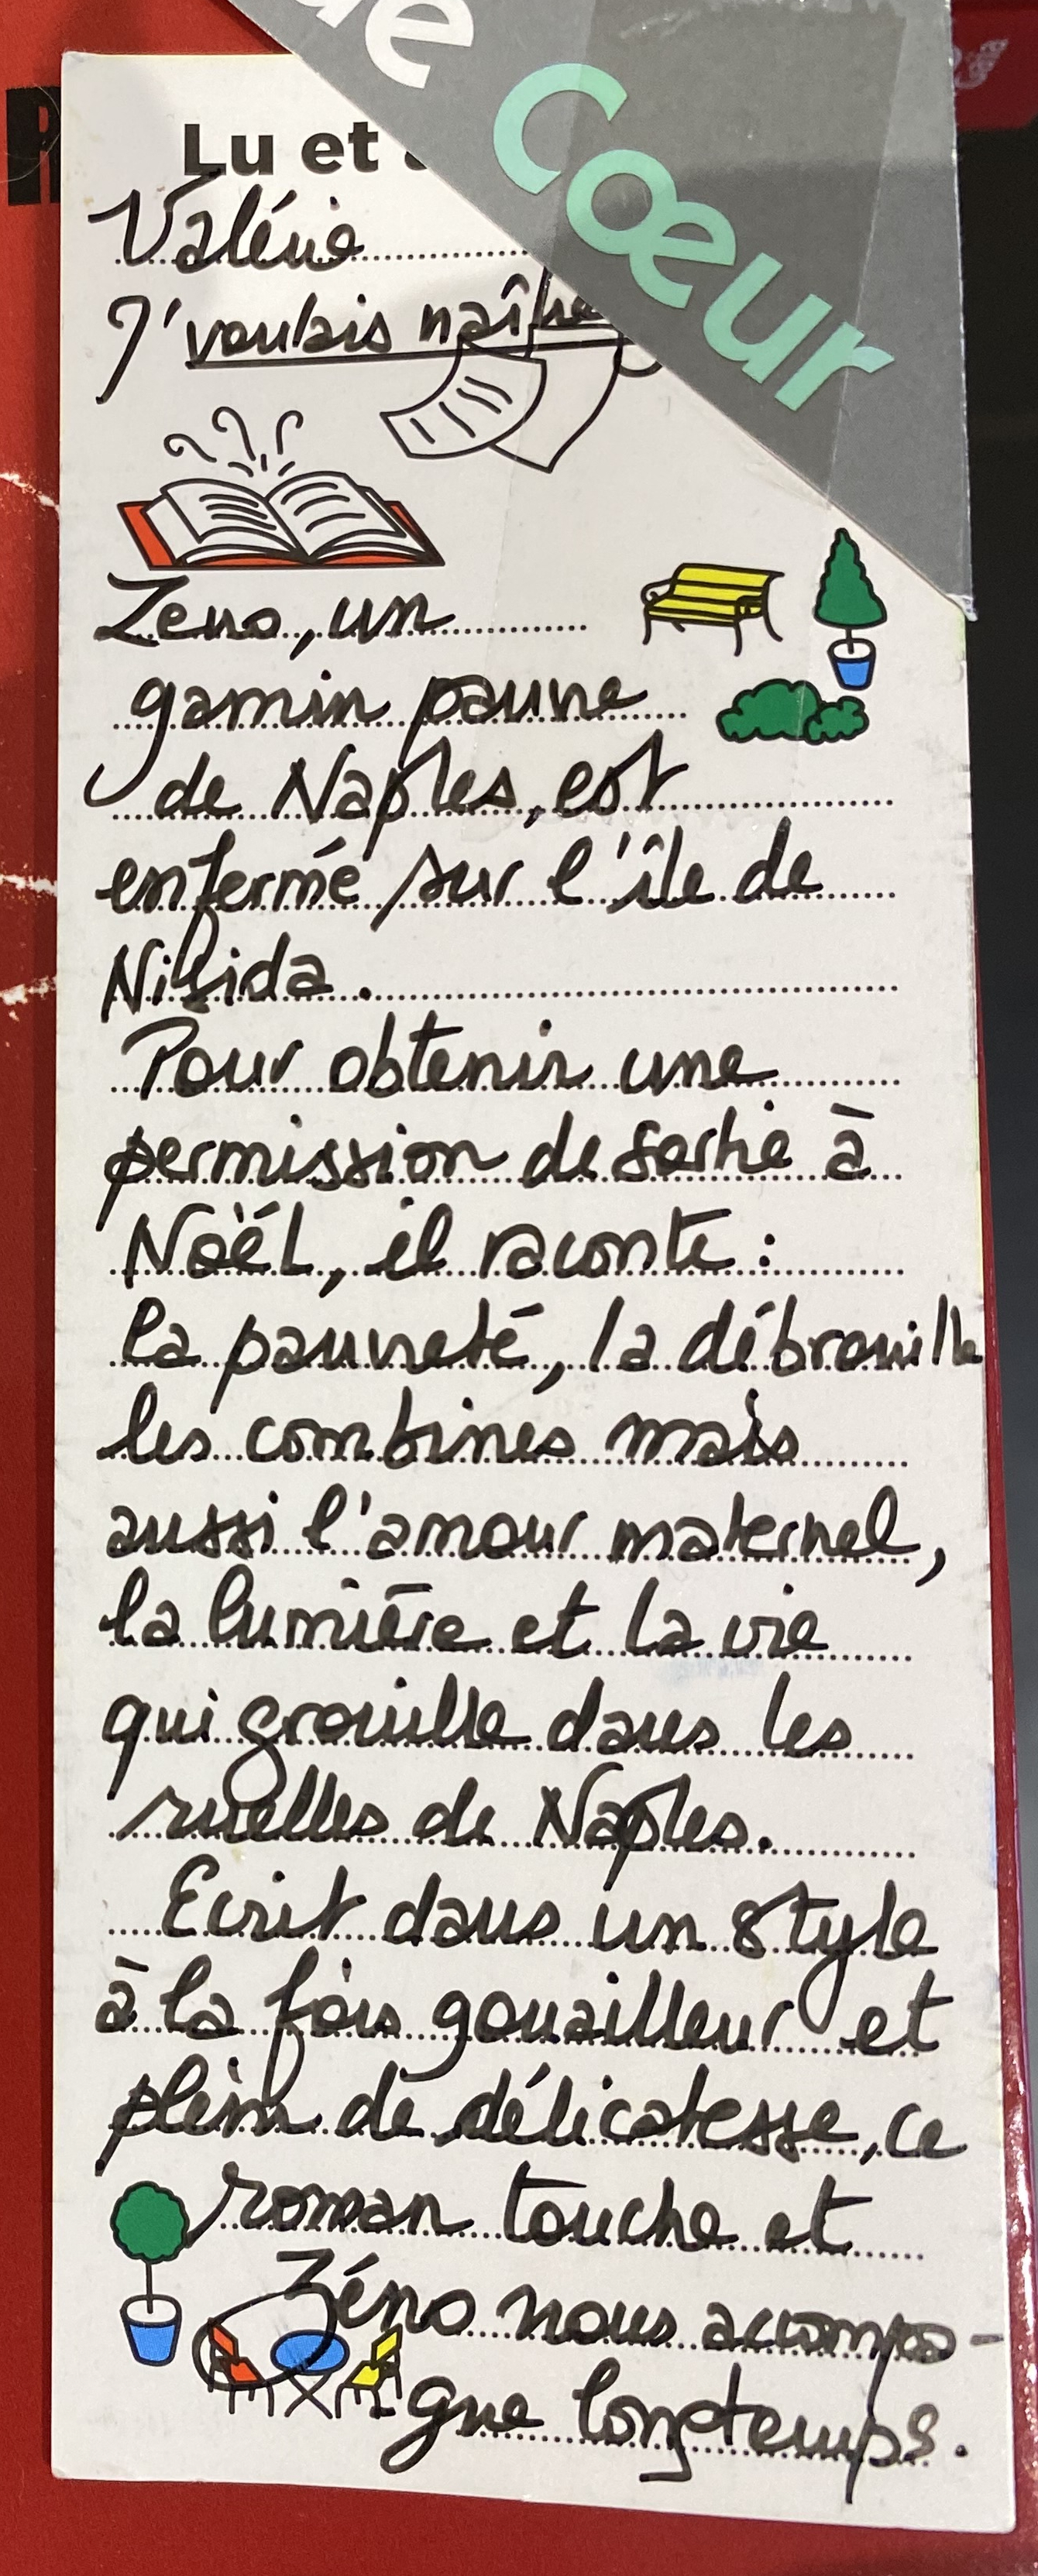 de
Cœur
Lu et
Valérie
J'voulais naître
Zeno, un
gamin pauvre
de Naples, est
enfermé sur l'île de
Nisida.
Pour obtenir une
permission de sortie à
Noël, il raconte :
la pauvreté, la débrouille
les combines mais
aussi l'amour maternel,
la lumière et la vie
qui grouille dans les
ruelles de Naples.
Ecrit dans un style
à la fois gouailleur et
plein de délicatesse, ce
roman touche et
Zéno nous accompa-
gne longtemps.